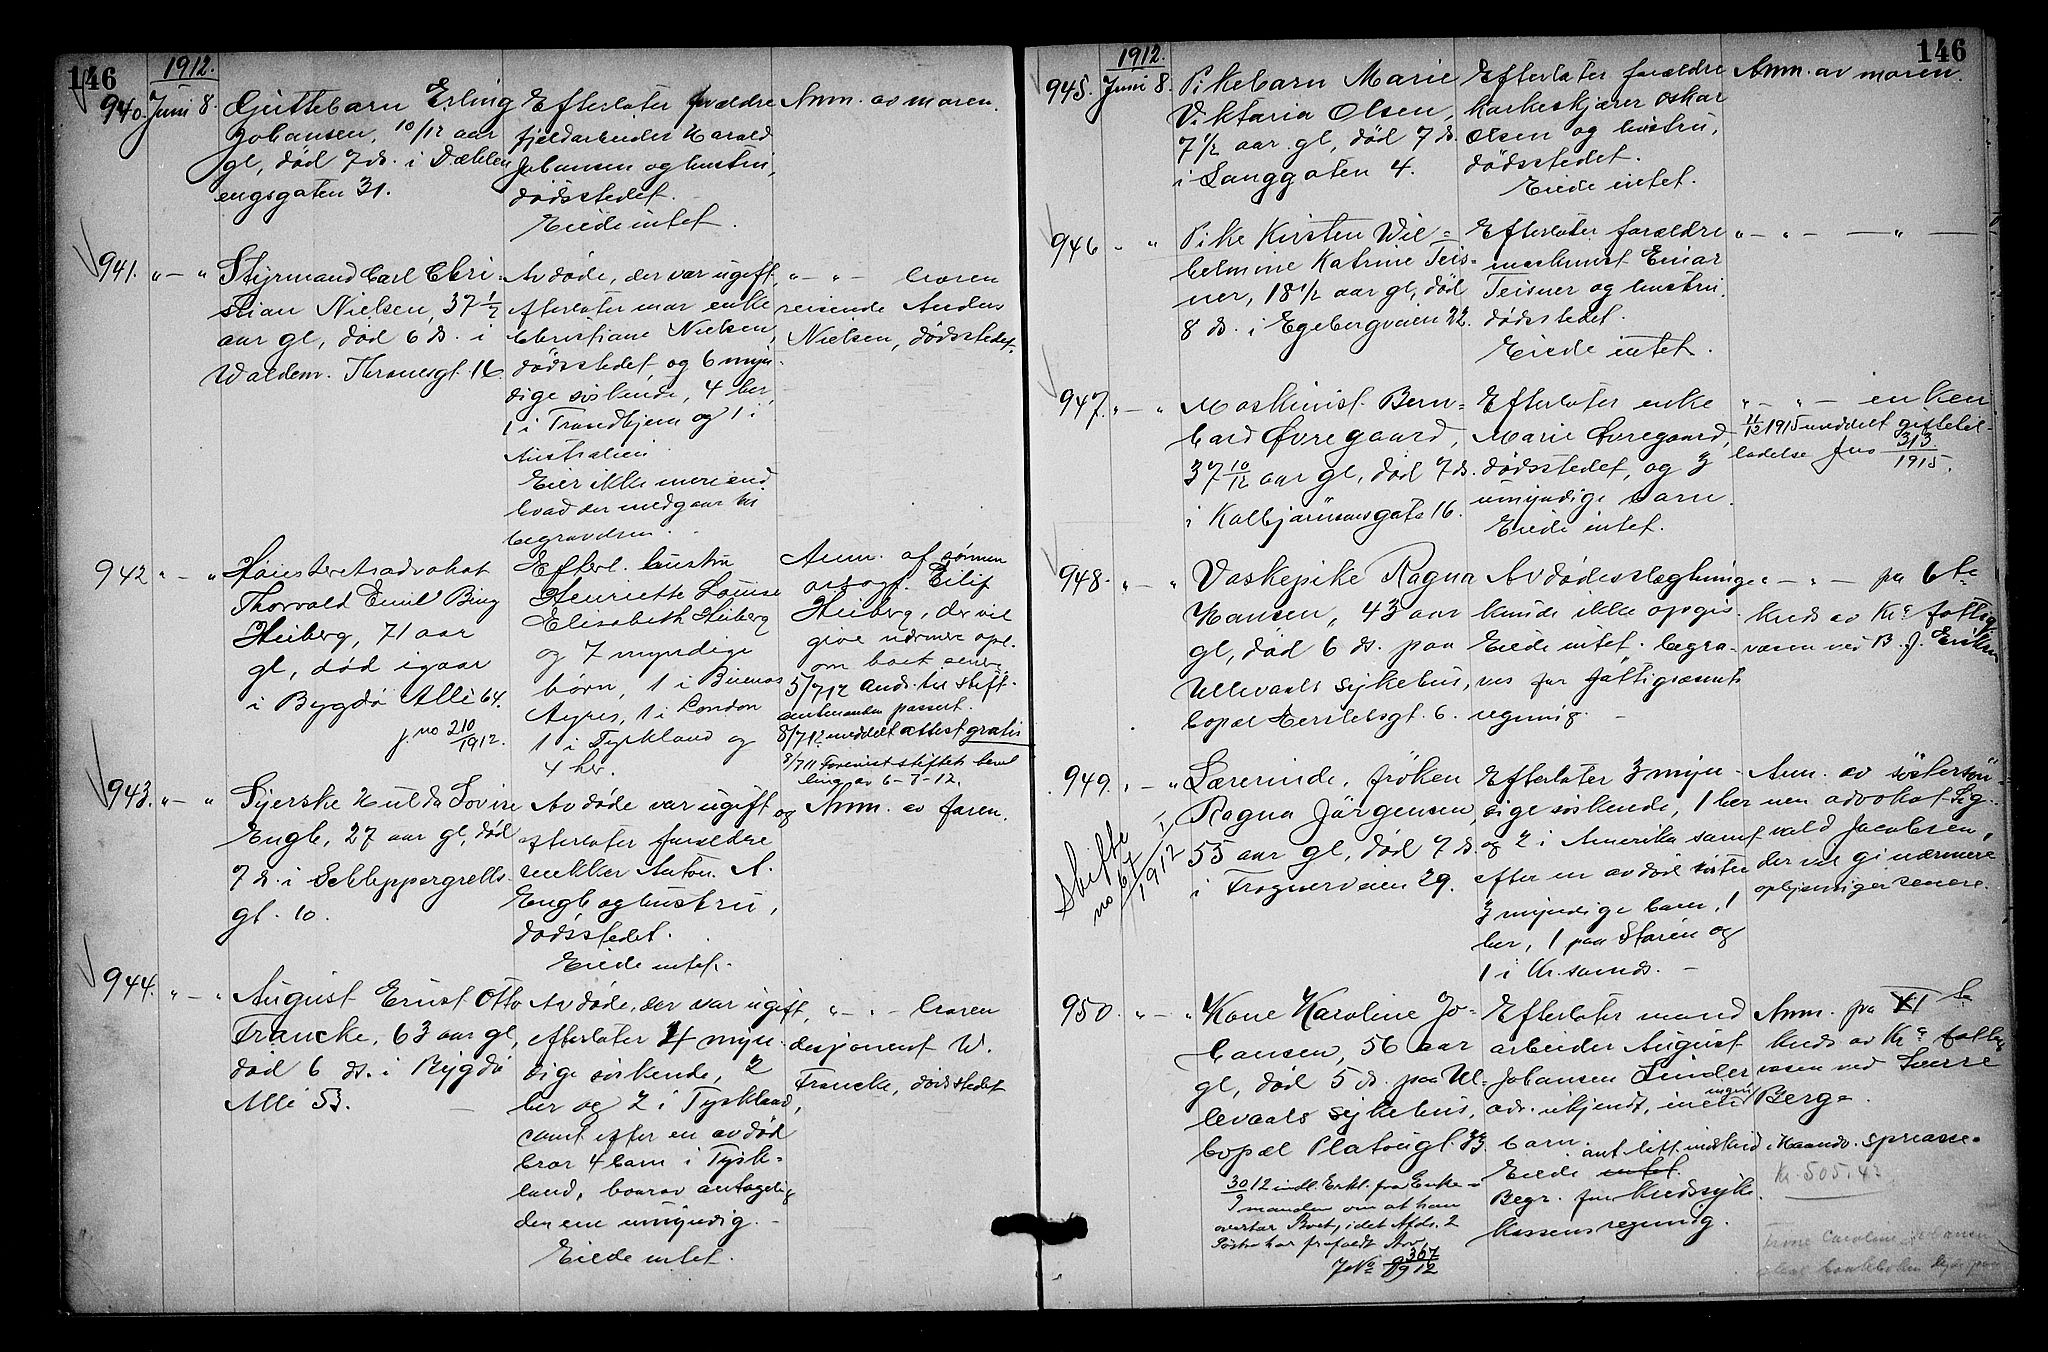 146
1912.
940. Juni 8. Guttebarn Erling
Johansen, 10/12 aar
gl, död 7 ds. i Dælen
engsgaten 31.
Efterlater forældre
fjeldarbeider Harald
Johansen og hustru,
dödsstedet.
Eiede intet.
Anm. av moren.
941. " — " Styrmand Carl Chri-
stian Nielsen, 37 1/2
aar gl, död 6 ds. i
Waldem. Thranesgt. 16.
Avdöde, der var ugift,
efterlater mor enke
Christiane Nielsen,
dödsstedet, og 6 myn-
dige söskende, 4 her
1 i Trondhjem og 1 i
Australien.
Eier ikke mere end
hvad der medgaar til
begravelsen.
" — " — broren
reisende Anders
Nielsen, dödsstedet.
942 " — " Höiesteretsadvokat
Thorvald Emil Bing
Heiberg, 71 aar
gl, död igaar
i Bygdö Allé 64.
j. no 210/1912.
Efterl. hustru
Henriette Louise
Elisabeth Heiberg
og 7 myndige
börn, 1 i Buenos
Ayres, 1 i London
1 i Tyskland og
4 her.
Anm. af sönnen
Eilif
Heiberg, der vil
give nærmere opl.
om boet senere
5/7 12 Ands. til Stift-
passert.
8/7 12 meddelt attest gratis
ling av 6-7-12.
943. " — " Syerske Hulda Lovise
Engh, 27 aar gl, död
7 ds. i Schleppergrells-
gt. 10.
Avdöde var ugift og
efterlater forældre
snekker Anton A.
Engh og hustru,
dödsstedet.
Eiede intet.
Anm. av faren.
944. " — " August Ernst Otto
Francke, 63 aar gl,
död 6 ds. i Bygdö
Allé 53.
Avdöde, der var ugift,
efterlater 4 myn-
dige söskende, 2
her og 2 i Tyskland,
samt efter en avdöd
bror 4 barn i Tysk-
land, hvorav antagelig
den ene umyndig.
Eiede intet.
" — " — broren
desponent W.
Francke, dödsstedet
146
1912.
945. Juni 8. Pikebarn Marie
Viktoria Olsen,
7 1/2 aar gl, död 7 ds.
i Langgaten 4.
Efterlater forældre
korkeskjærer Oskar
Olsen og hustru,
dödsstedet.
Eiede intet.
Anm. av moren.
946 " " Pike Kirsten Wil=
helmine Katrine Teis=
ner, 18 1/2 aar gl, död
8 ds. i Egebergveien 22.
Efterlater forældre
maskinist Einar
Teisner og hustru.
dödsstedet.
Eiede intet.
" — " — — " —
947. " — " Maskinist Bern=
hard Övregaard,
37 10/12 aar gl, död 7 ds.
i Kolbjörnsensgate 16.
Efterlater enke
Marie Övregaard,
dödsstedet, og 3
umyndige barn.
Eiede intet.
" — " — enken
11/12 1915 meddelt giftetil-
ladelse Jno 313/1915.
948. " — " Vaskepike Ragna
Hansen, 43 aar
gl, död 6 ds. paa
Ullevaals sykehus,
bopæl Herslebsgt. 6.
Avdödes slegtninge
kunde ikke opgis.
Eiede intet. begra-
ves for fattigvæsenets
regning. —
" — " — pa 6te
kreds av Kra fattig
væsen ved B. J. Eriksen
949. " — " Lærerinde, fröken
Ragna Jörgensen,
55 aar gl, död 7 ds.
i Frognerveien 29.
Skifte
no 67/1912
Efterlater 3 myn-
dige söskende, 1 her
og 2 i Amerika samt
efter en avdöd söster
3 myndige barn, 1
her, 1 paa Stören og
1 i Kr.sands. —
Anm. av sösterson=
nen advokat Sig-
vald Jacobsen,
der vil gi nærmere
oplysninger senere.
950. " — " Kone Karoline Jo-
hansen, 56 aar
gl, död 5 ds. paa Ul-
levaals sykehus,
bopæl Platougt. 33.
30/9 12 indl. Erkl. fra Enke-
manden om at han
overtar Boet, idet Afdö. 2
Söstre har frafaldt Arv.
JNo 367/1912
Efterlater mand
arbeider August
Johansen Linder
adr. ukjendt, ingen
barn.
Eiede intet.
Begr. for Kredssyke
kassens regning.
Anm. pa XI te
kreds av Kra fattig
væsen ved Lærer
Berge.
Kr. 505.43